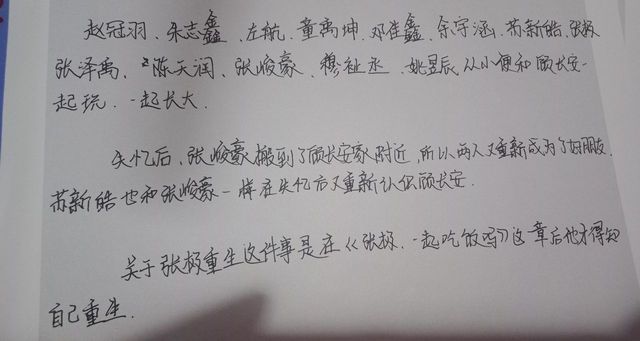 赵冠羽、朱志鑫、左航、童禹坤、邓佳鑫、余宇涵、苏新皓、张极
张泽禹、陈天润、张峻豪、穆祉丞、姚昱辰从小便和顾长安一
起玩，一起长大.
失忆后，张峻豪搬到了顾长安家附近，所以两人又重新成为了好朋友.
苏新皓也和张峻豪一样在失忆后又重新认识顾长安.
关于张极重生这件事是在《张极，一起吃饭吗》这章后他才得知
自己重生.